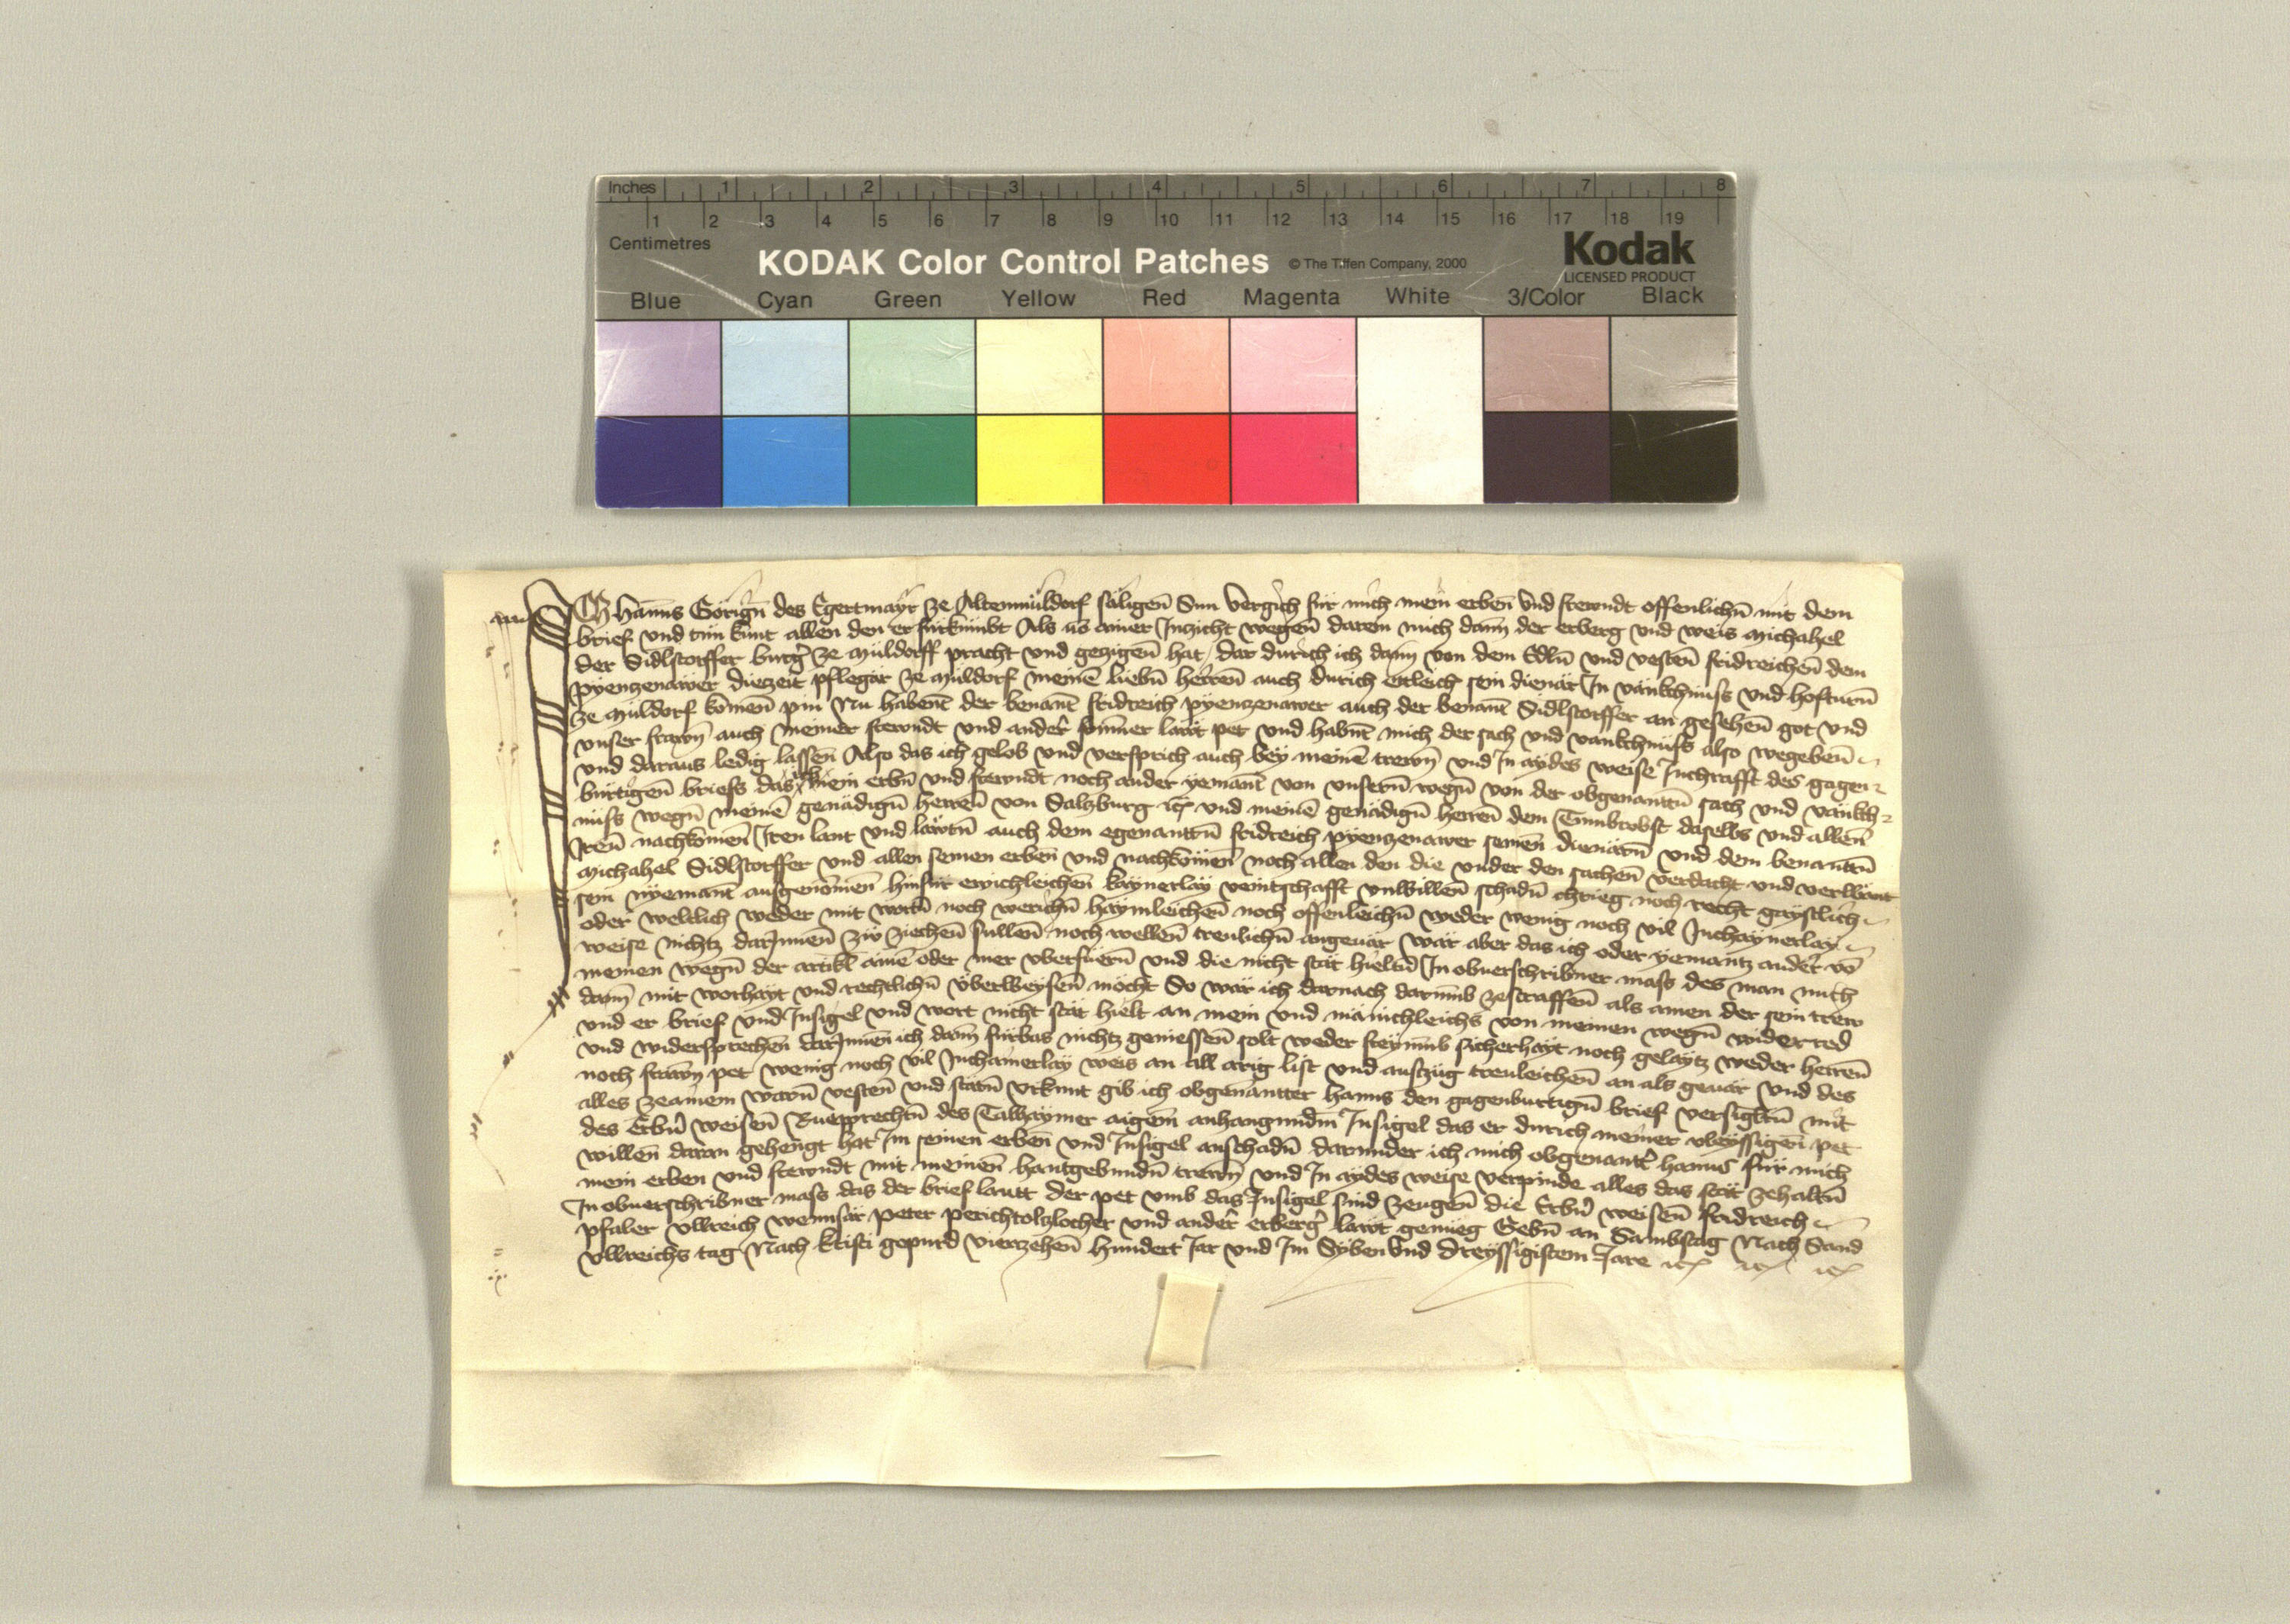 Inches 1 2 3 4 5 6 7 8
1 2 3 4 5 6 7 8 9 10 11 12 13 14 15 16 17 18 19
Centimetres
KODAK Color Control Patches © The Tiffen Company, 2000 Kodak
LICENSED PRODUCT
Blue Cyan Green Yellow Red Magenta White 3/Color Black
ICH Hanns Görign̄ des Egertmayr ze Altenmüldorf säligen̄ Sun vergich für mich mein erben̄ vnd frewndt offenlichn̄ mit dem
brief vnd tün kunt allen den er fürkumbt Als vō ainer Inzicht wegen̄ darein mich dann̄ der erberg vnd weis Michahel
der Sidlstorffer burg̉ ze Müldorff pracht vnd gezigen̄ hat dar durich ich dann̄ von dem Edln̄ vnd vesten̄ fridreichen̄ dem
pyenzenawer diezeit pfleger ze Müldorf meinē liebn̄ herren̄ auch durich etleich sein dienär In vänkchnuss vnd hofturn̄
ze Müldorf komen̄ pin Nu habent der benant fridreich pyenzenawer auch der benant Sidlstorffer an gesehen̄ got vnd
vnser frawn̄ auch meiner frewndt vnd ander̉ frummer läwt pet vnd habnt mich der sach vnd vankchnuss also wegeben̄
vnd daraus ledig lassen̄ Also das ich gelob vnd versprich auch bey meinē trewn̄ vnd In aydes weise Inchrafft des gagen
bürtigen̄ briefs das ich mein erbn̄ vnd frewndt noch ander yemant von vnsern̄ wegn̄ von der obgenanttn̄ sach vnd vänkch
nuss wegn̄ meinē genädign̄ herren̄ von Salzburg etc vnd meinē genädign̄ herren̄ dem Tumbrobst daselbs vnd allen̄
Iren̄ nachkomen̄ Iren lant vnd läwtn̄ auch dem egenanttn̄ fridreich pyenzenawer seinen̄ dienärn̄ vnd dem benanttn̄
Michahel Sidlstorffer vnd allen seinen erben̄ vnd nachkomen̄ noch allen den die vnder den sachen̄ verdacht vnd verwant
sein nyemant ausgenomen̄ hinfür ewichleichen̄ kaynerlay veintschafft vnwillen̄ schadn̄ chrieg noch recht gaystlich
oder weltlich weder mit wortn̄ noch werichn̄ haymleichen̄ noch offenleichn̄ weder wenig noch vil Inchaynerlay
weise nichtz darInnen̄ zw ziechen̄ sullen̄ noch wellen̄ trewlichn̄ angeuär wär aber das ich oder yemantz ander̉ vō
meinen wegn̄ der artikl ainē oder mer vberfüern̄ vnd die nicht stät hieltn̄ In obuerschribner mass des man mich
dann̄ mit worhayt vnd rechtlichn̄ überweysen̄ möcht So wär ich darnach darumb zestraffen̄ als ainen der sein trew
vnd er brief vnd Insigel vnd wort nicht stät hielt an mein vnd mänichleichs von meinen wegn̄ widerred
vnd widersprechen̄ darInnen ich dann̄ fürbas nichtz geniessen̄ solt weder freyumb sicherhayt noch gelaytz weder herren̄
noch frawn̄ pet wenig noch vil Inchainerlay weis an all arig list vnd auszüg trewleichen̄ an als geuär vnd des
alles zeainem warn̄ vesten̄ vnd stätn̄ vrkunt gib ich obgenantter hanns den gagenburtign̄ brief versigltn̄ mit
des Erbn̄ weisen̄ Ruepprechtn̄ des Talhaymer aigem anhangundm̄ Insigel das er durich meiner vleyssigen̄ pet
willen̄ daran gehengt hat Im seinen erben vnd Insigel anschadn̄ darunder ich mich obgenant̉ hanns für mich
mein erben vnd frewndt mit meinen̄ hantgebundn̄ trewn̄ vnd In aydes weise verpinde alles das stät zehaltn̄
In obuerschribner mass das der brief lautt der pet vmb das Insigel sind zeugen̄ die Erbn̄ weisen̄ fridreich
pfaler vllreich wennsär peter perichtolzlocher vnd ander̉ erberg̉ läwt genueg Gebn̄ an Sambstag Nach Sand
vllreichs tag Nach kristi gepurd vierzehen̄ Hundert Jar vnd Im Syben vnd dreyssigistem Jare etc etc etc